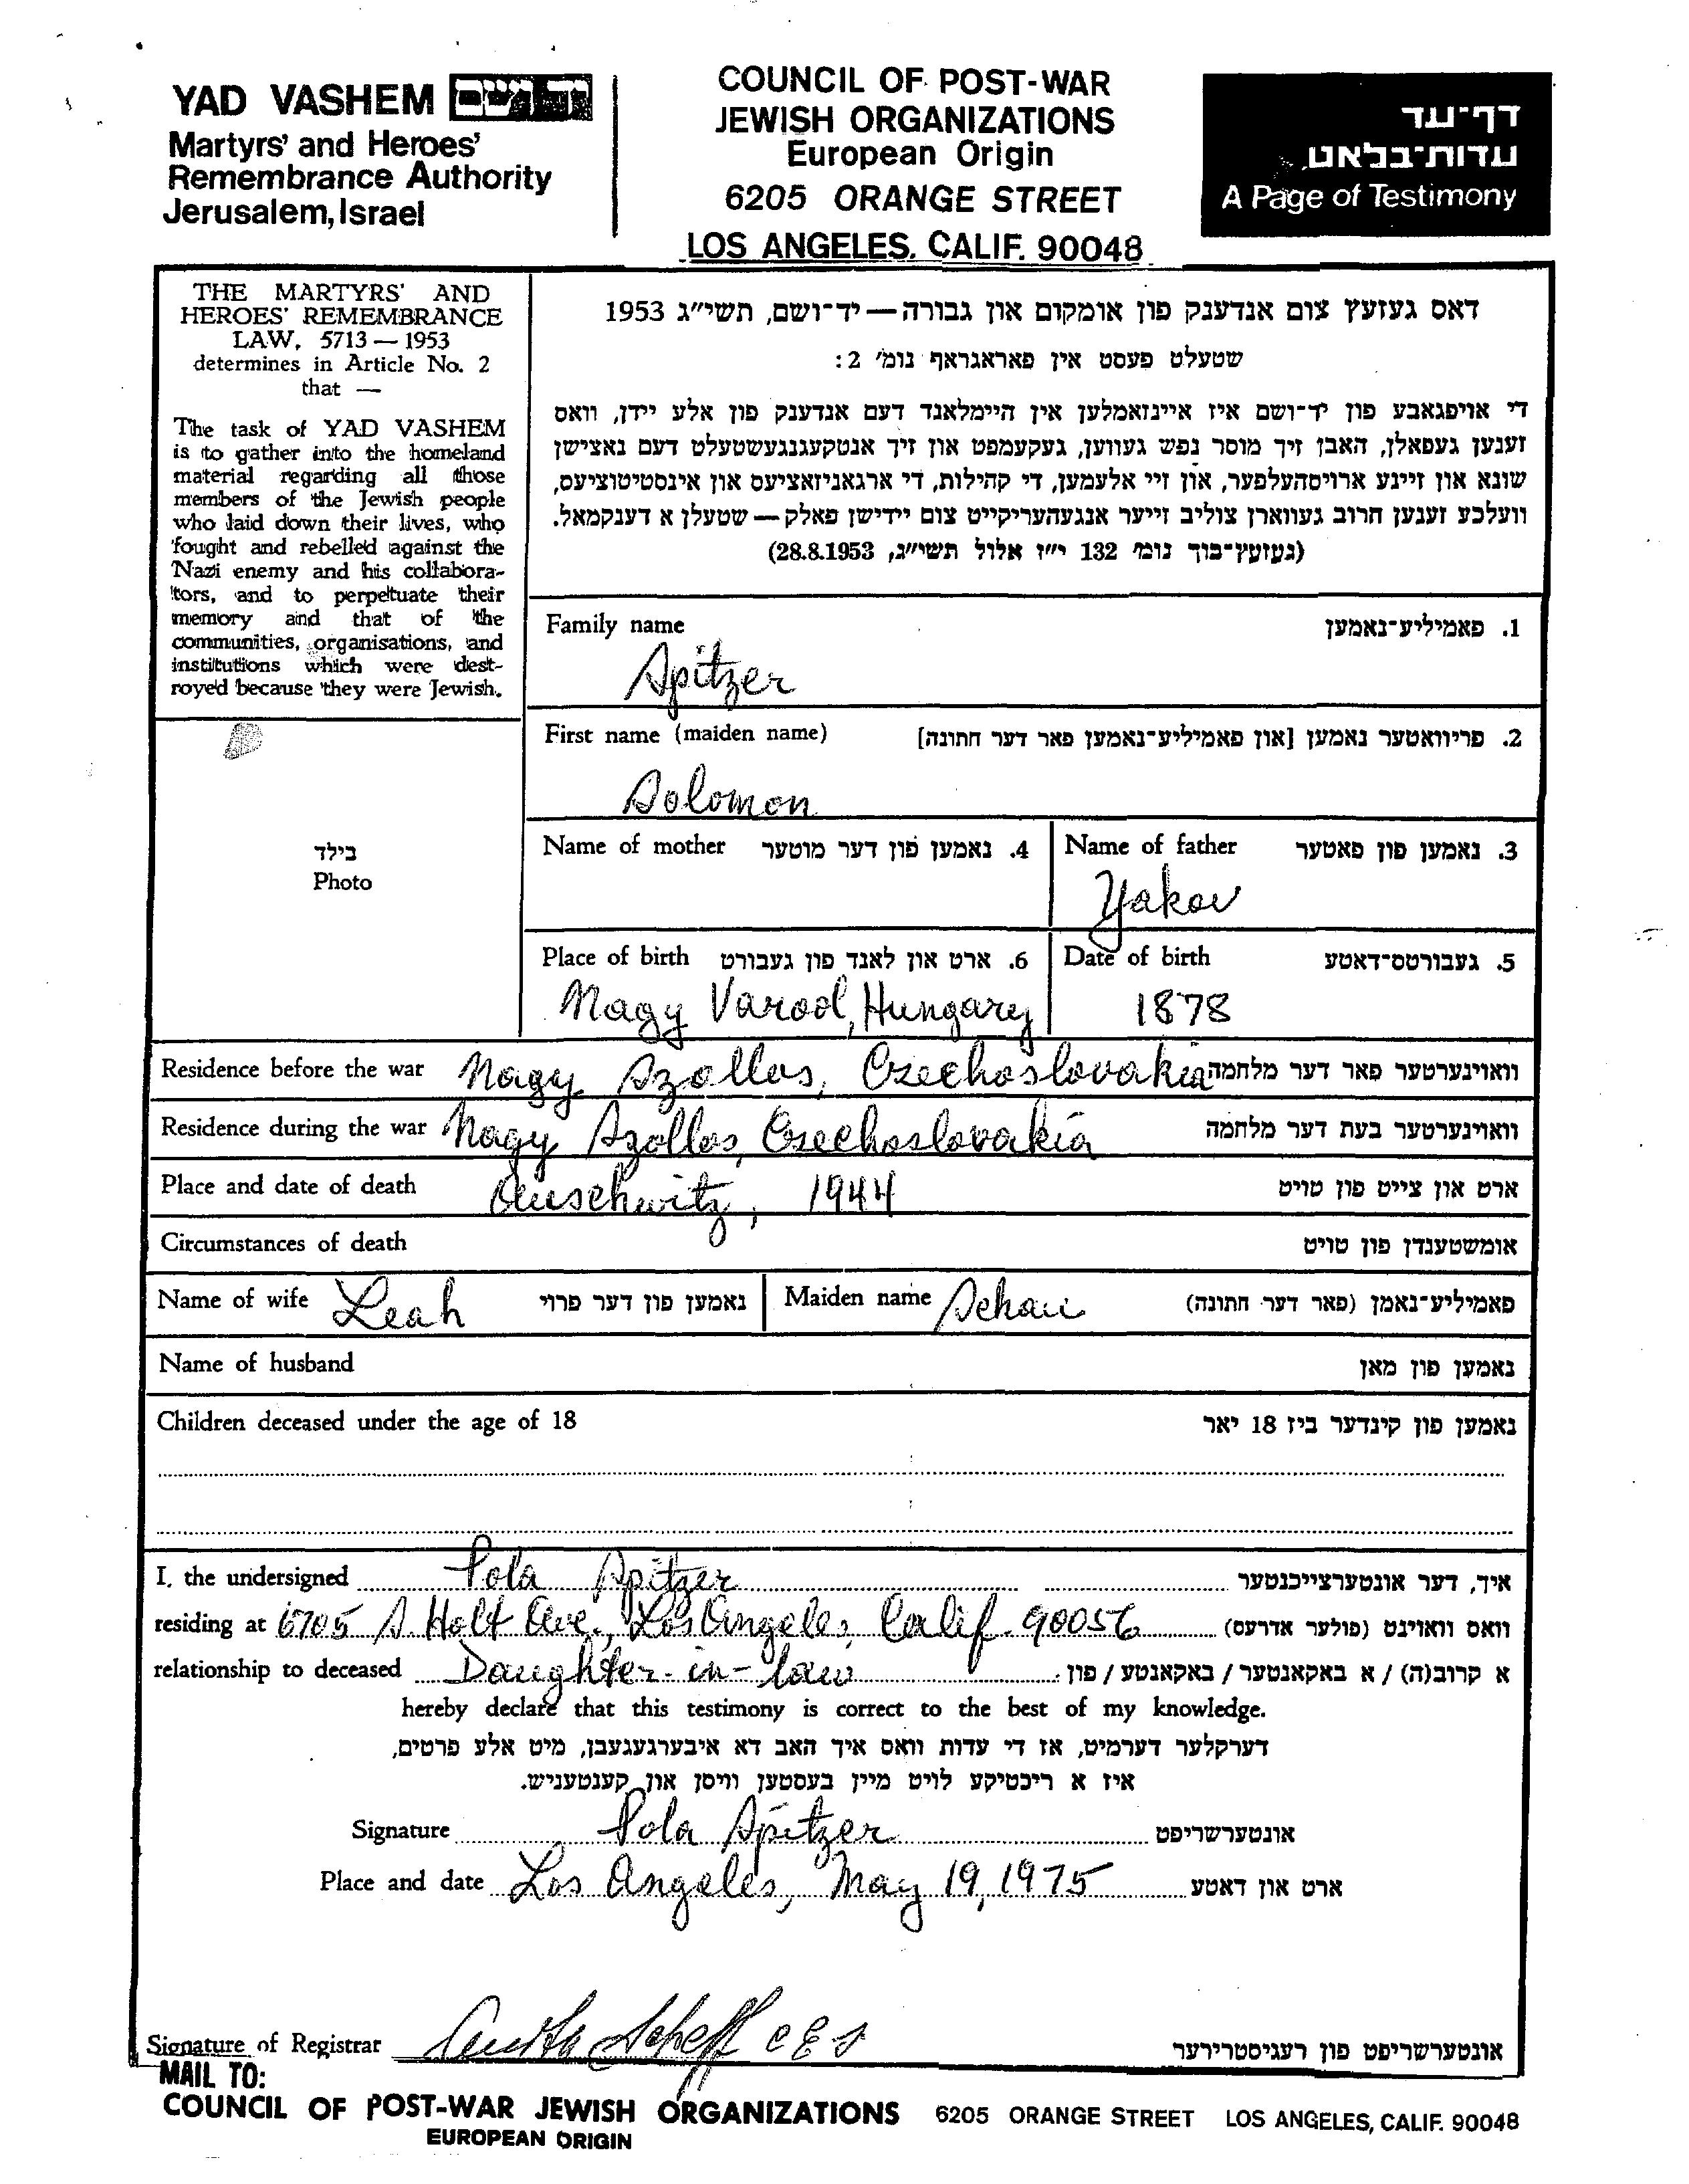 YAD VASHEM יד ושם
Martyrs' and Heroes'
Remembrance Authority
Jerusalem, Israel
COUNCIL OF POST-WAR
JEWISH ORGANIZATIONS
European Origin
6205 ORANGE STREET
LOS ANGELES, CALIF. 90048
דף־עד
עדות־בלאט
A Page of Testimony
THE MARTYRS' AND
HEROES' REMEMBRANCE
LAW, 5713 — 1953
determines in Article No. 2
that —
The task of YAD VASHEM
is to gather into the homeland
material regarding all those
members of the Jewish people
who laid down their lives, who
fought and rebelled against the
Nazi enemy and his collabora-
tors, and to perpetuate their
memory and that of the
communities, organisations, and
institutions which were dest-
royed because they were Jewish.
דאס געזעץ צום אנדענק פון אומקום און גבורה — יד־ושם, תשי״ג 1953
שטעלט פעסט אין פאראגראף נומ׳ 2:
די אויפגאבע פון יד־ושם איז איינזאמלען אין היימלאנד דעם אנדענק פון אלע יידן, וואס
זענען געפאלן, האבן זיך מוסר נפש געווען, געקעמפט און זיך אנטקעגנגעשטעלט דעם נאצישן
שונא און זיינע ארויסהעלפער, און זיי אלעמען, די קהילות, די ארגאניזאציעס און אינסטיטוציעס,
וועלכע זענען חרוב געווארן צוליב זייער אנגעהעריקייט צום יידישן פאלק — שטעלן א דענקמאל.
(געזעץ־בוך נומ׳ 132 י״ז אלול תשי״ג, 28.8.1953)
בילד
Photo
Family name 1. פאמיליע־נאמען
Spitzer
First name (maiden name) 2. פריוואטער נאמען [און פאמיליע־נאמען פאר דער חתונה]
Solomon
Name of mother 4. נאמען פון דער מוטער Name of father 3. נאמען פון פאטער
Yakov
Place of birth 6. ארט און לאנד פון געבורט Date of birth 5. געבורטס־דאטע
Nagy Varod, Hungary 1878
Residence before the war Nagy Szollos, Czechoslovakia וואוינערטער פאר דער מלחמה
Residence during the war Nagy Szollos, Czechoslovakia וואוינערטער בעת דער מלחמה
Place and date of death Auschwitz, 1944 ארט און צייט פון טויט
Circumstances of death אומשטענדן פון טויט
Name of wife Leah נאמען פון דער פרוי Maiden name פאמיליע־נאמן (פאר דער חתונה)
Name of husband נאמען פון מאן
Children deceased under the age of 18 נאמען פון קינדער ביז 18 יאר
I, the undersigned Pola Spitzer איך, דער אונטערצייכנטער
residing at 6705 S. Holt Ave., Los Angeles, Calif. 90056 וואס וואוינט (פולער אדרעס)
relationship to deceased Daughter-in-law א קרוב(ה) / א באקאנטער / באקאנטע / פון:
hereby declare that this testimony is correct to the best of my knowledge.
דערקלער דערמיט, אז די עדות וואס איך האב דא איבערגעגעבן, מיט אלע פרטים,
איז א ריכטיקע לויט מיין בעסטען וויסן און קענטעניש.
Signature Pola Spitzer אונטערשריפט
Place and date Los Angeles, May 19, 1975 ארט און דאטע
Signature of Registrar Anita Scheff אונטערשריפט פון רעגיסטרירער
MAIL TO:
COUNCIL OF POST-WAR JEWISH ORGANIZATIONS 6205 ORANGE STREET LOS ANGELES, CALIF. 90048
EUROPEAN ORIGIN